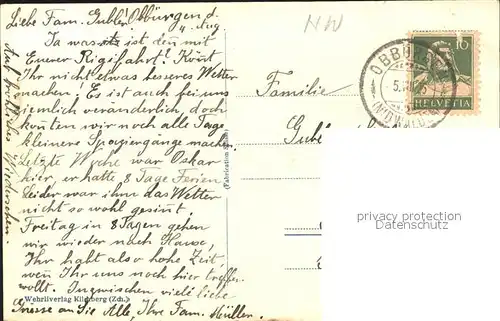 Liebe Fam. Gubler! Obbürgen d.
4. Aug.
Ja was ist den mit
Euerer Rigifahrt? Könt
Ihr nicht etwas besseres Wetter
machen! Es ist auch bei uns
ziemlich veränderlich, doch
konten wir noch alle Tage
kleinere Spaziergänge machen.
Letzte Woche war Oskar
hier, er hatte 8 Tage Ferien
Leider war ihm das Wetter
nicht so wohl gesint
Freitag in 8 Tagen gehen
wir wieder nach Hause,
Ihr habt also hohe Zeit,
wen Ihr uns noch hier treffen
wollt. Inzwischen viele liebe
Grüsse an Sie Alle, Ihre Fam. Müller.
Auf fröhliches Wiedersehen.
Wehrliverlag Kilchberg (Zch.)
(Fabrication Suisse)
NW
Familie
Gubl
10
HELVETIA
OBBÜ
privacy protection
Datenschutz